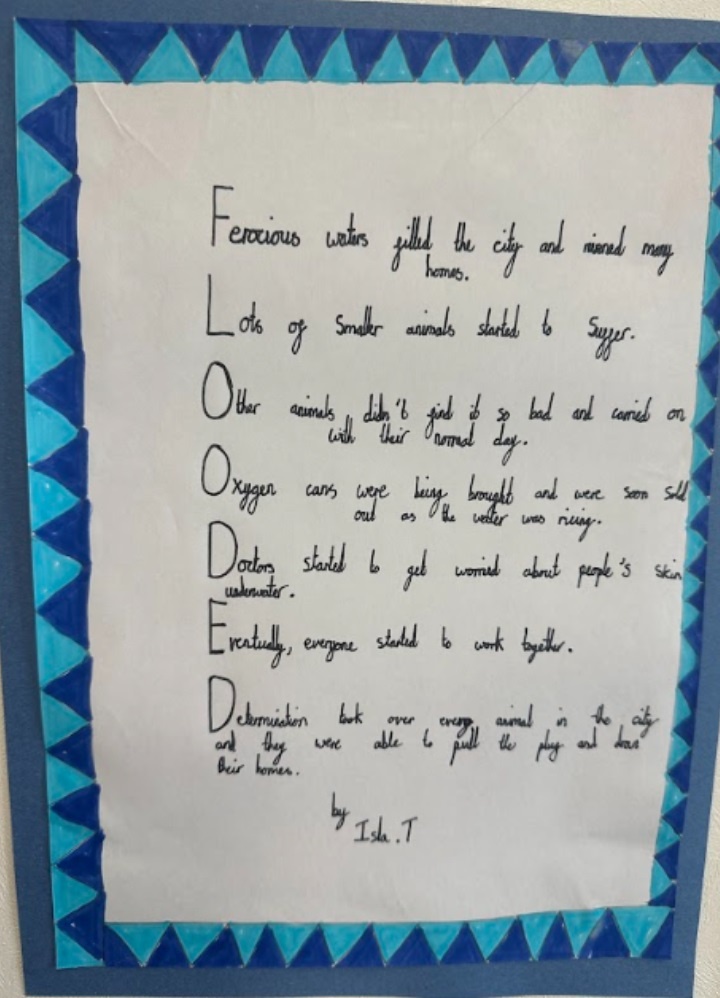 Ferocious waters filled the city and ruined many
homes.
Lots of Smaller animals started to Suffer.
Other animals didn't find it so bad and carried on
with their normal day.
Oxygen cans were being brought and were soon sold
out as the water was rising.
Doctors started to get worried about people's skin
underwater.
Eventually, everyone started to work together.
Determination took over every animal in the city
and they were able to pull the plug and drain
their homes.
by
Isla.T